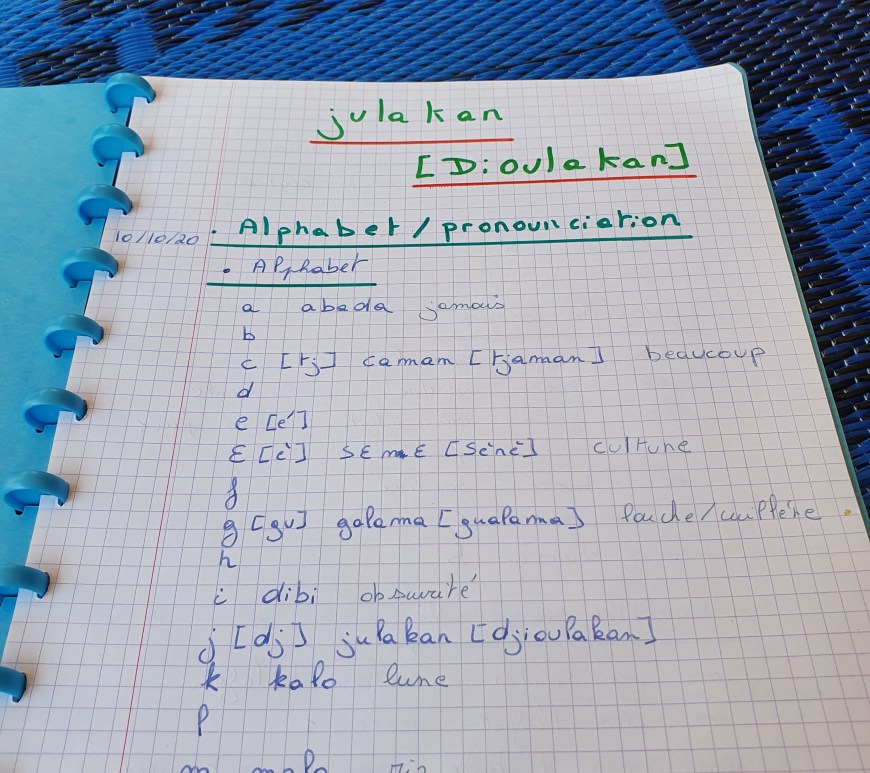 julakan
[Dioulakan]
10/10/20 . Alphabet / pronounciation
. Alphabet
a abada jamais
b
c [tj] camam [tjaman] beaucoup
d
e [é]
ɛ [è] sɛnɛ [sènè] culture
f
g [gu] galama [gualama] louche/cuillère
h
i dibi obscurité
j [dj] julakan [djioulakan]
k kalo lune
l
m malo riz